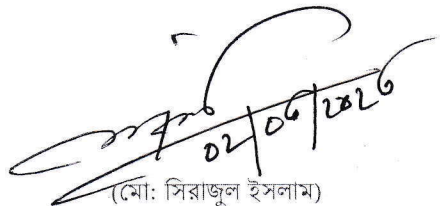 ০২/০৬/২০২৬
(মো: সিরাজুল ইসলাম)